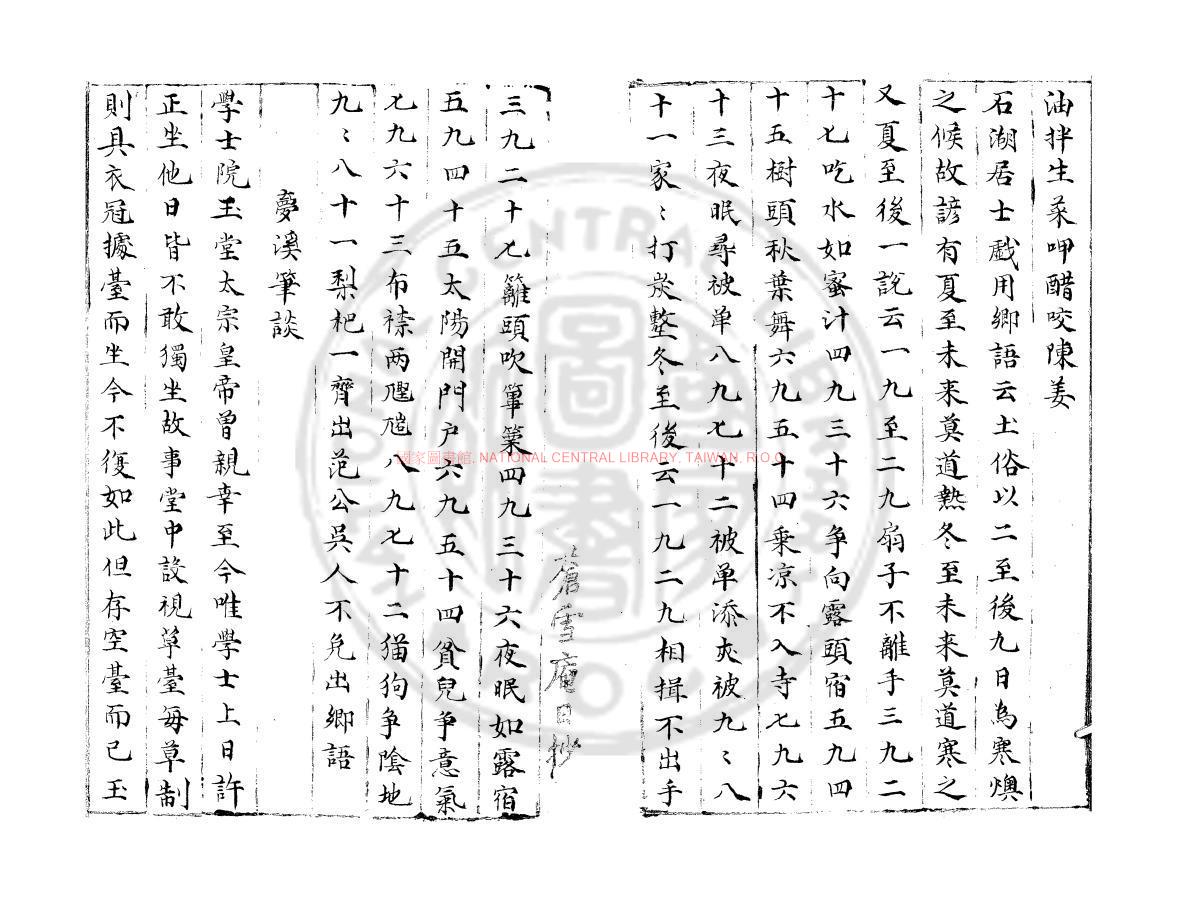 油拌生菜呷醋咬陳姜
石湖居士戲用鄉語云土俗以二至後九日為寒燠
之候故諺有夏至未來莫道熱冬至未來莫道寒之
又夏至後一說云一九至二九扇子不離手三九二
十七吃水如蜜汁四九三十六争向露頭宿五九四
十五樹頭秋葉舞六九五十四乗凉不入寺七九六
十三夜眠尋被单八九七十二被单添夾被九〻八
十一家〻打炭墼冬至後云一九二九相揖不出手
蒼雪庵日抄
三九二十七籬頭吹篳篥四九三十六夜眠如露宿
五九四十五太陽開門户六九五十四貧兒争意氣
七九六十三布襟两 八九七十二猫狗争陰地
九〻八十一犁杷一齊出范公吳人不免出鄉語
夢溪筆談
學士院玉堂太宗皇帝曾親幸至今唯學士上日許
正坐他日皆不敢獨坐故事堂中設視草臺每草制
則具衣冠據臺而坐今不復如此但存空臺而已玉
國家圖書館, NATIONAL CENTRAL LIBRARY, TAIWAN, R.O.C